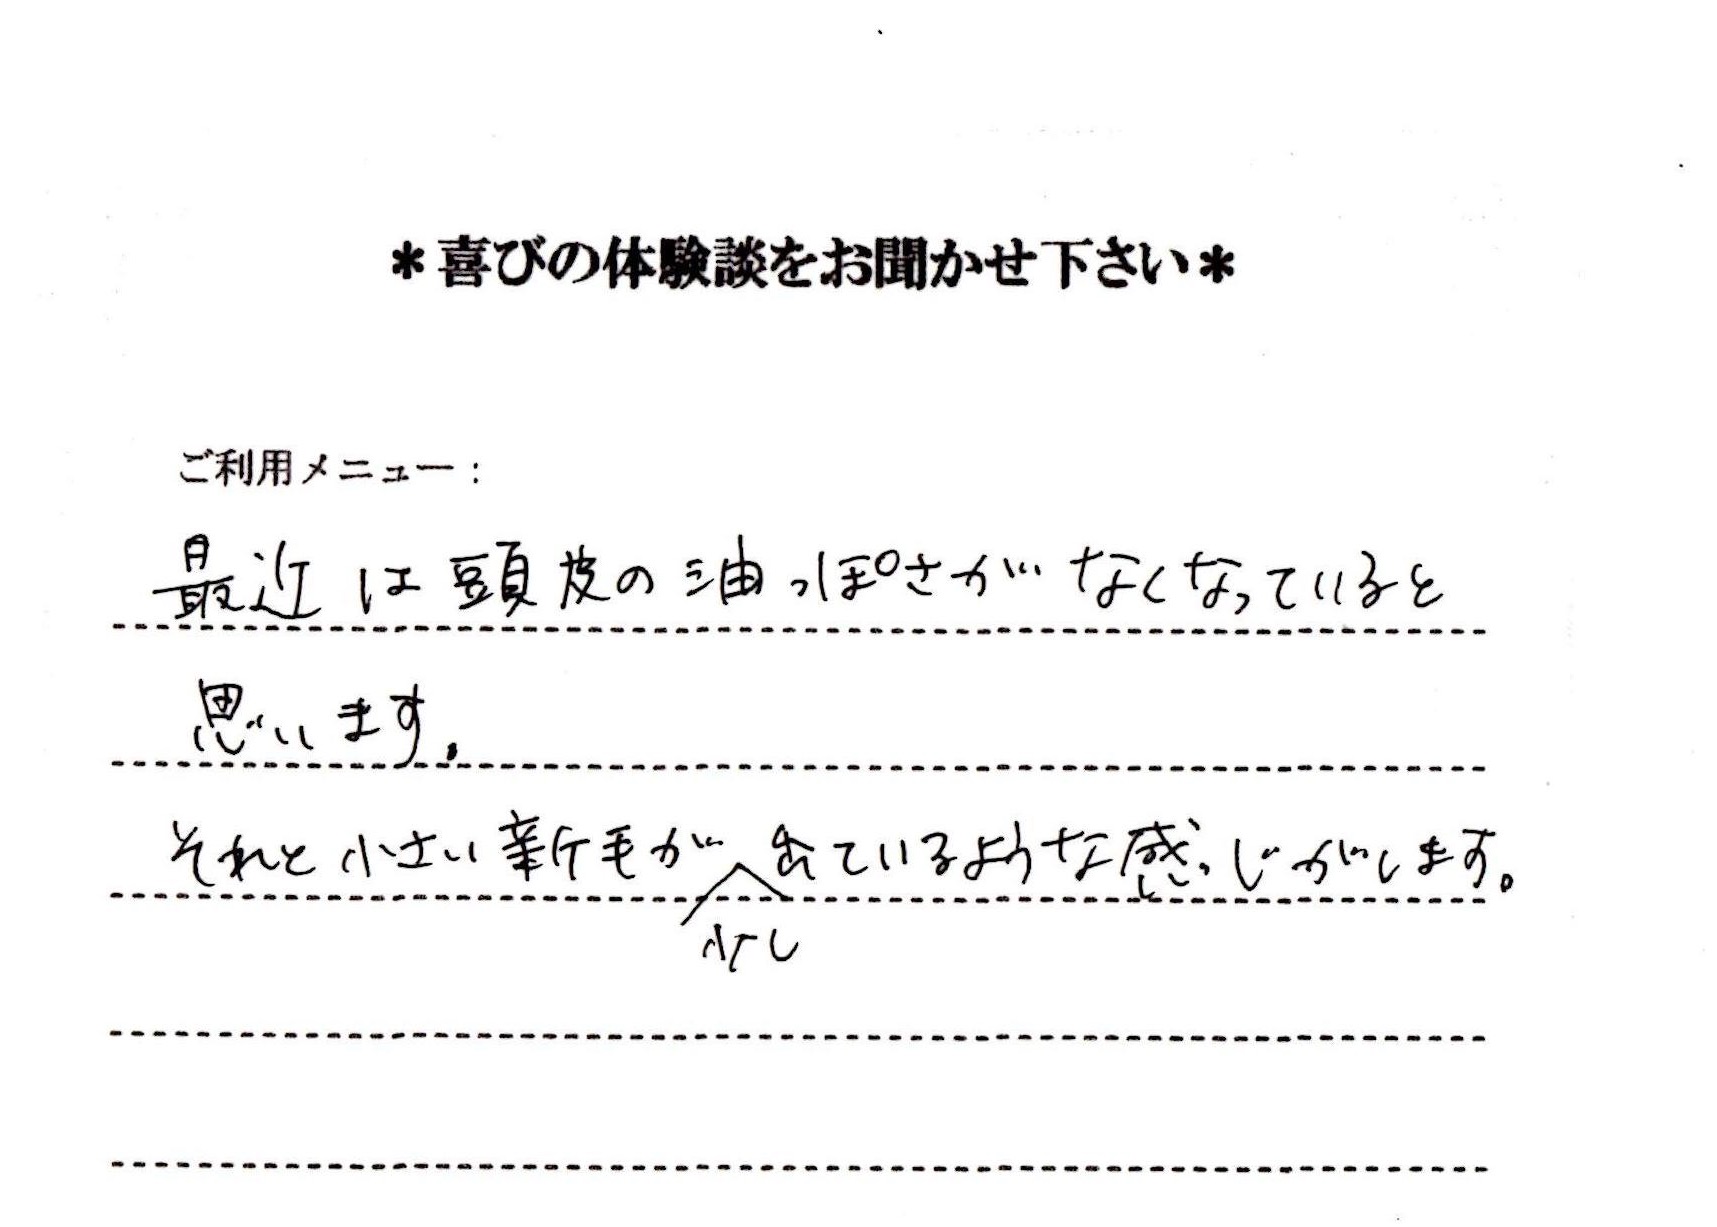 ＊喜びの体験談をお聞かせ下さい＊
ご利用メニュー：
最近は頭皮の油っぽさがなくなっていると
思います。
それと小さい新毛が出ているような感じがします。
少し